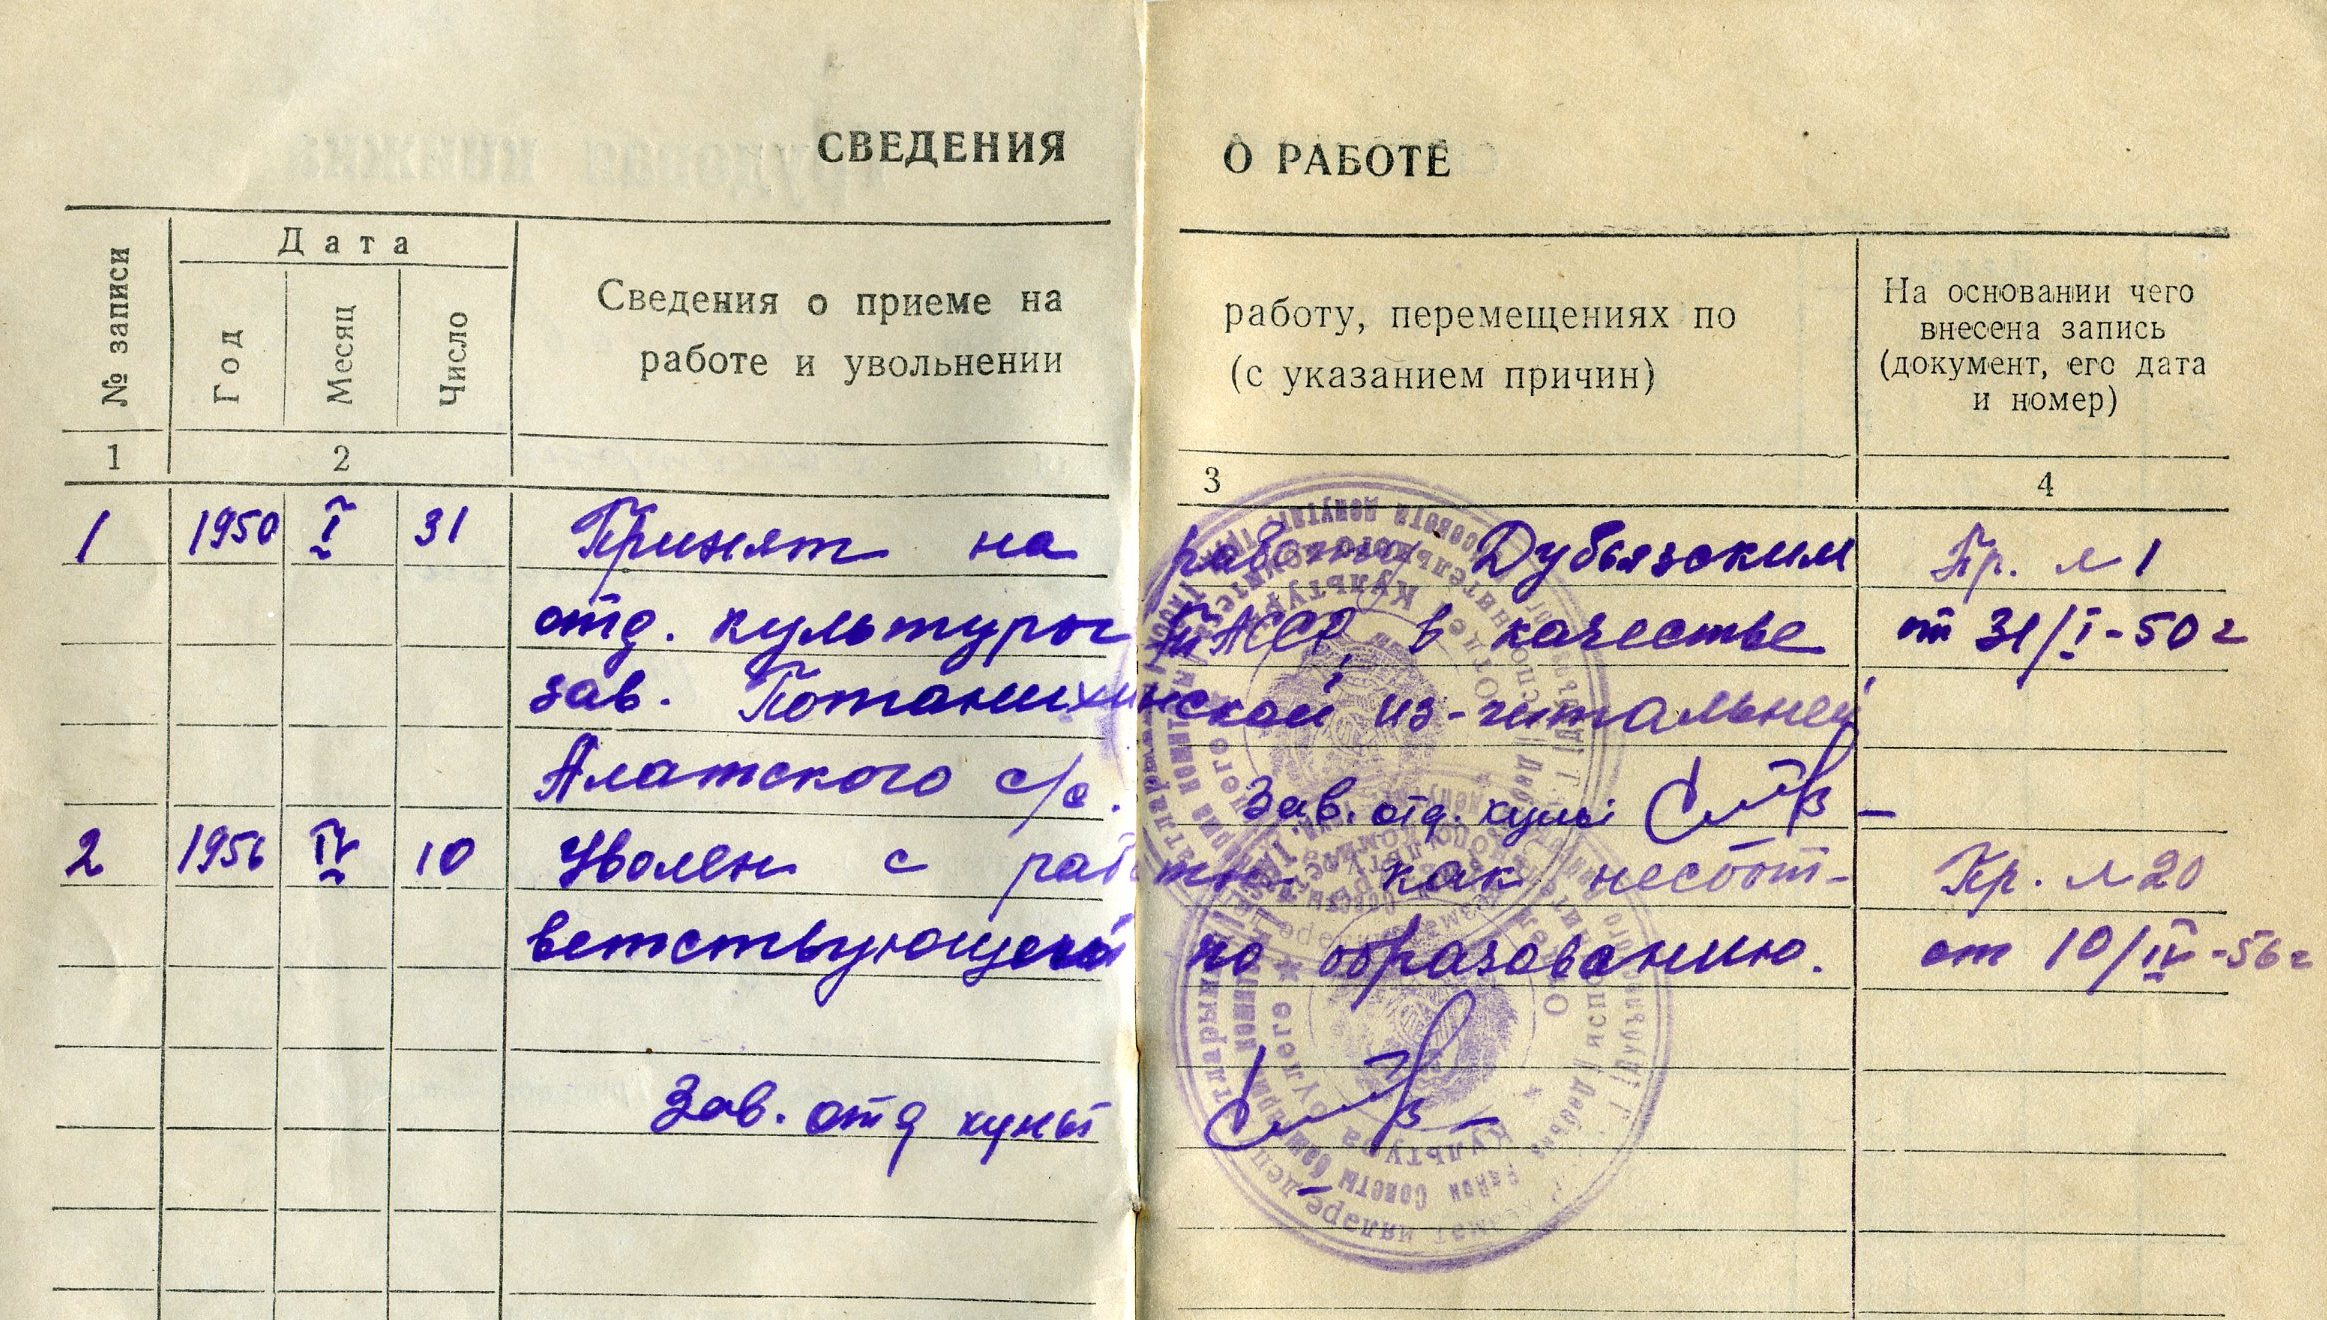 СВЕДЕНИЯ О РАБОТЕ
№ записи
Дата
Год
Месяц
Число
Сведения о приеме на работу, перемещениях по
работе и увольнении (с указанием причин)
На основании чего
внесена запись
(документ, его дата
и номер)
1 2 3 4
1 1950 I 31 Принят на работу Дубьязским Пр. № 1
отд. культуры ТАССР, в качестве от 31/I-50 г
зав. Потанихинской из-читальней
Алатского с/с. Зав. отд. культ
2 1956 IV 10 Уволен с работы как несоот- Пр. № 20
ветствующего по образованию. от 10/IV-56 г
Зав. отд культ